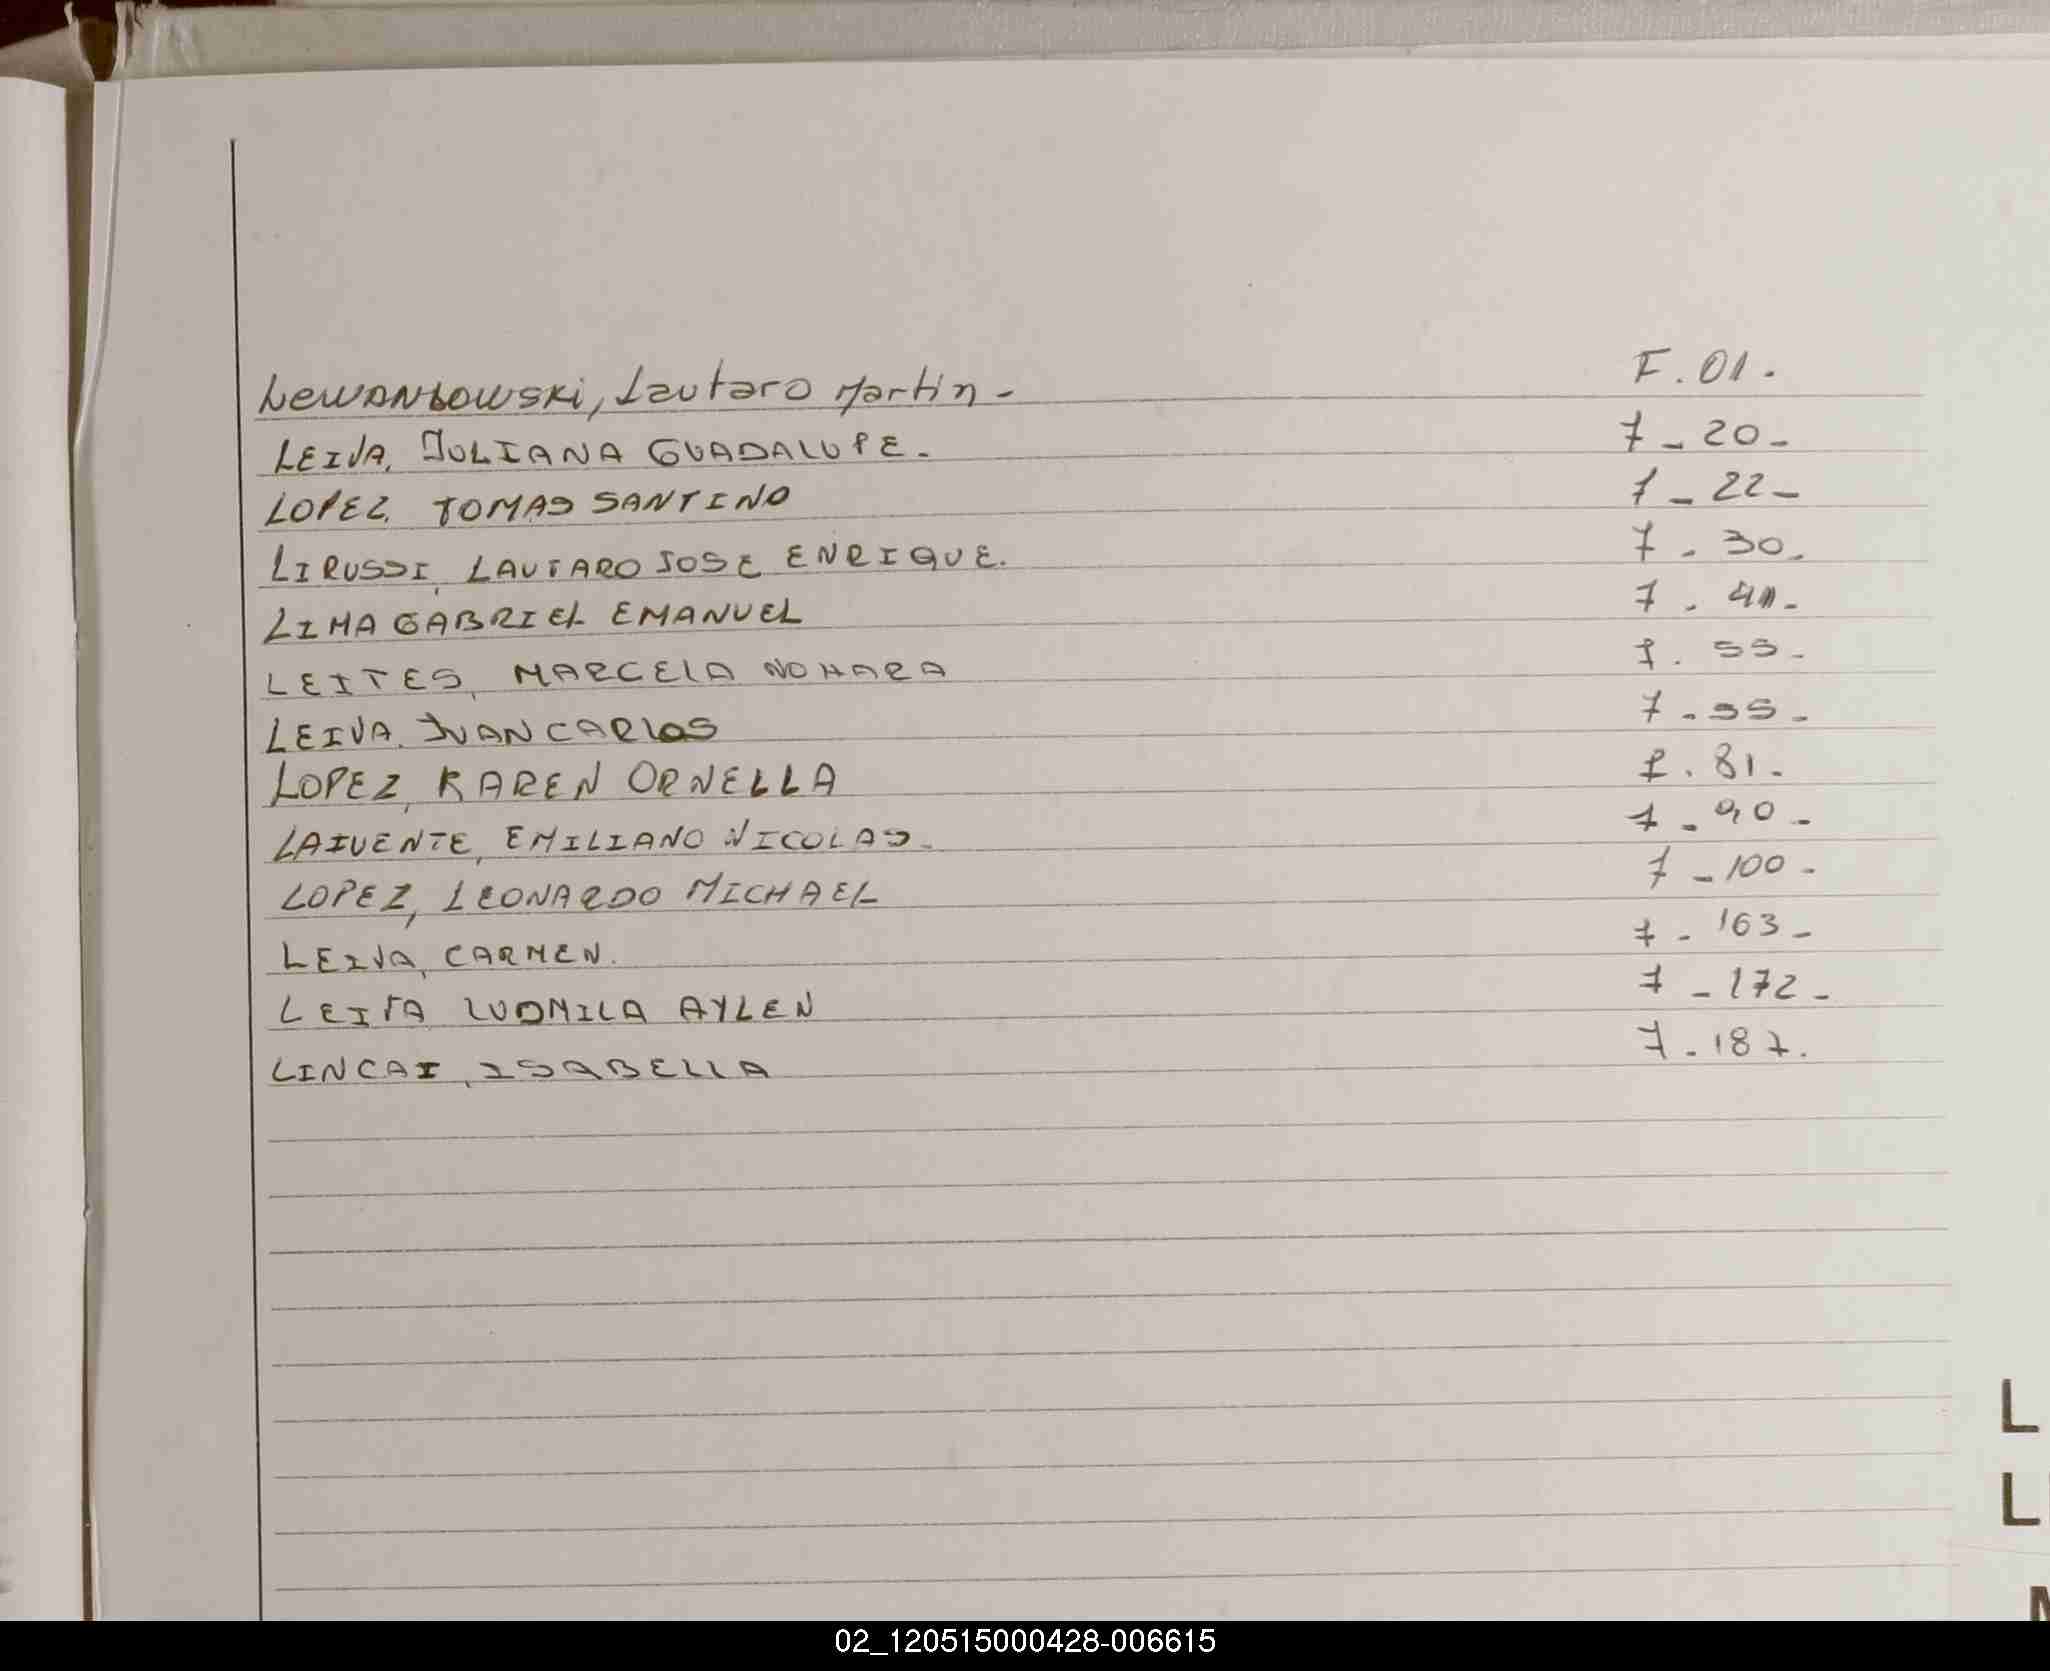 Lewandowski, Lautaro Martin - F. 01.
LEIVA, JULIANA GUADALUPE. 7 - 20 -
LOPEZ, TOMAS SANTINO 7 - 22 -
LIRUSSI, LAUTARO JOSE ENRIQUE. 7 - 30.
LIMA GABRIEL EMANUEL 7 - 41 -
LEITES, MARCELA NOHARA 7. 55 -
LEIVA, JUAN CARLOS 7 - 55 -
LOPEZ, KAREN ORNELLA 7. 81 -
LAIVENTE, EMILIANO NICOLAS - 7 - 90 -
LOPEZ, LEONARDO MICHAEL 7 - 100 -
LEIVA, CARMEN. 7 - 163 -
LEIVA LUDMILA AYLEN 7 - 172 -
LINCAI, ISABELLA 7 - 187.
L
L
02_120515000428-006615